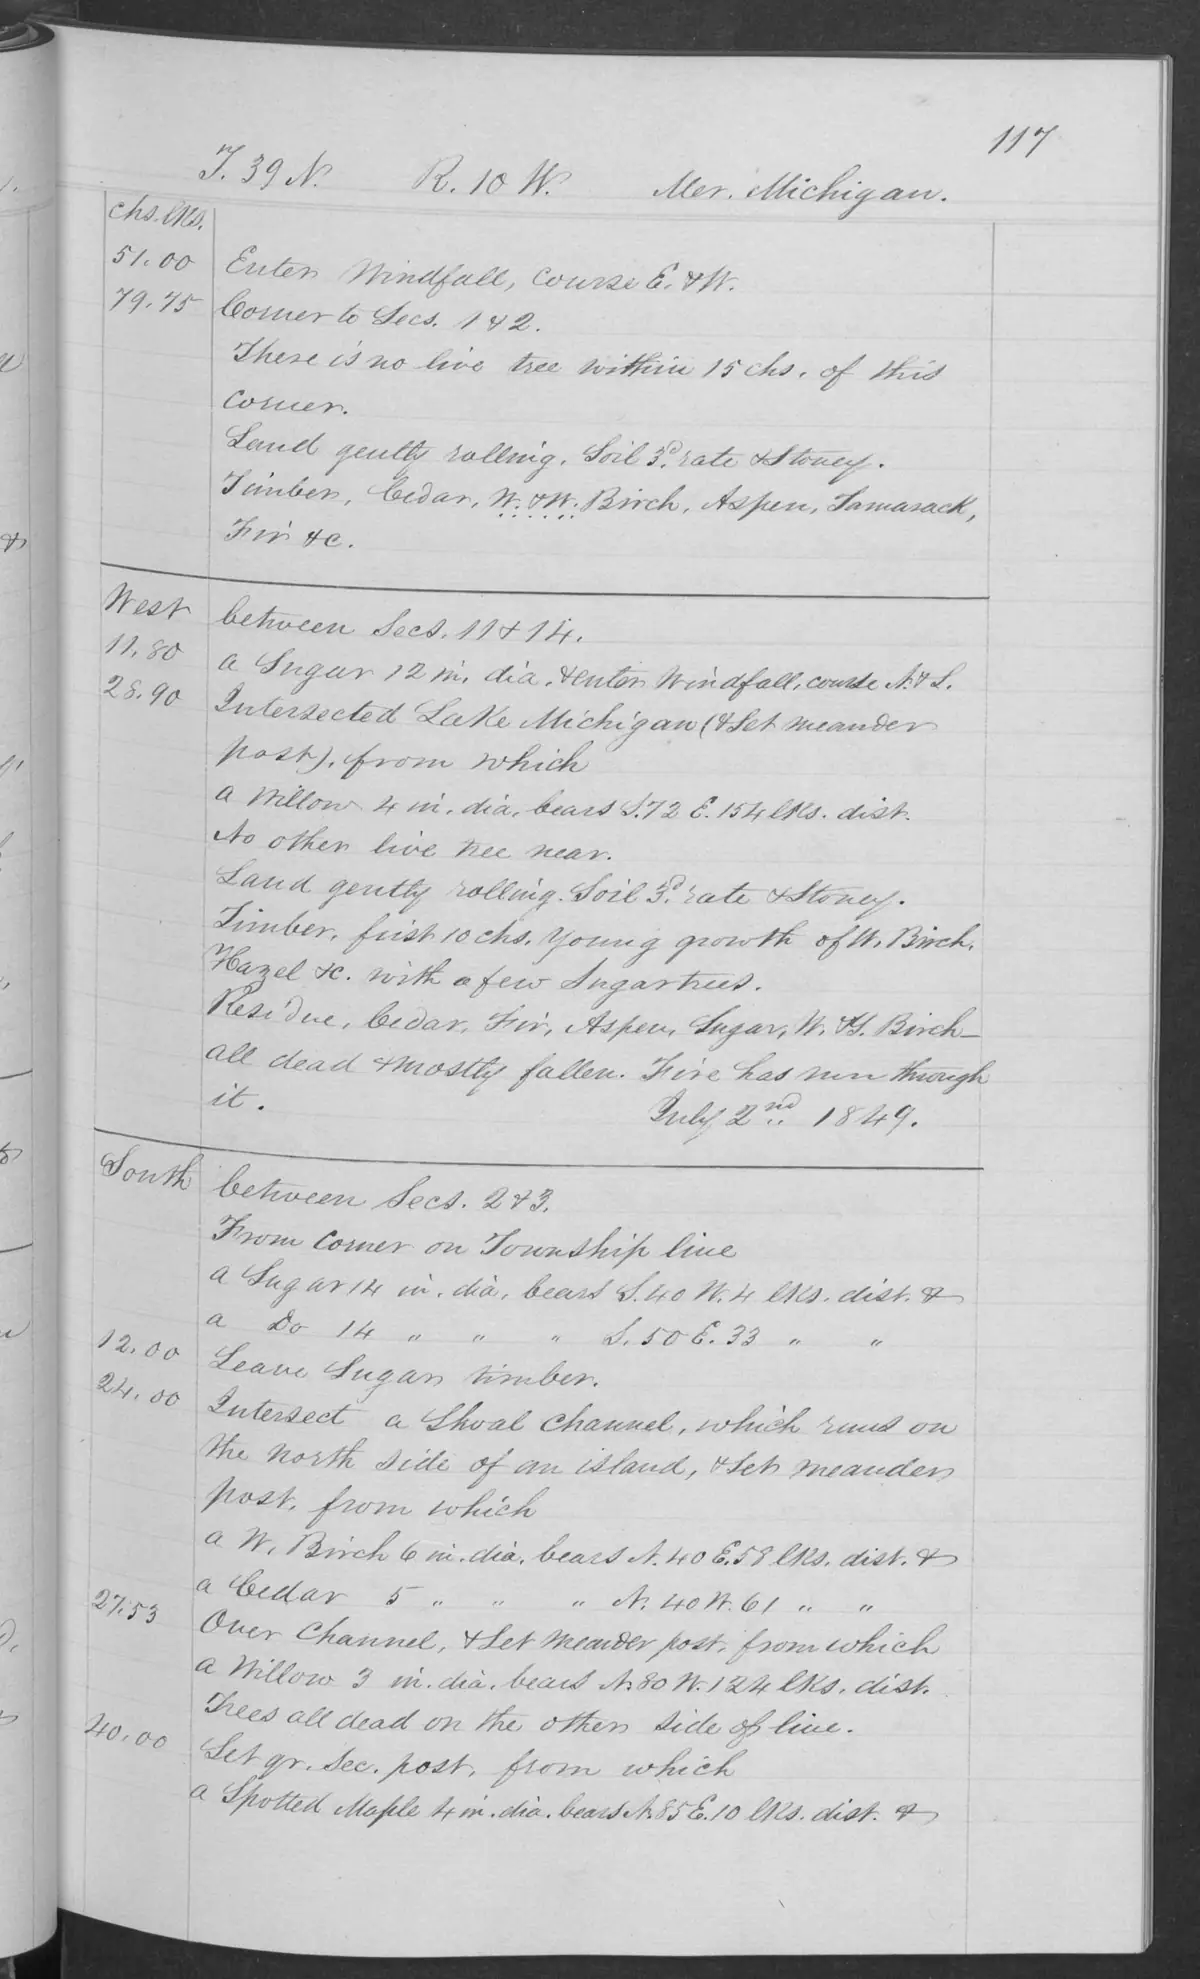 117
T. 39 N. R. 10 W. Mer. Michigan.
chs. lks.
51.00 Enter Windfall, course E. & W.
79.75 Corner to Secs. 1 & 2.
There is no live tree within 15 chs. of this
corner.
Land gently rolling. Soil 3d. rate & Stoney.
Timber, Cedar, W. & W. Birch, Aspen, Tamarack,
Fir &c.
West between Secs. 11 & 14.
11.80 a Sugar 12 in. dia. & enter Windfall, course N. & S.
28.90 Intersected Lake Michigan (& Set meander
post), from which
a Willow 4 in. dia. bears S. 72 E. 154 lks. dist.
No other live tree near.
Land gently rolling. Soil 3d. rate & Stoney.
Timber, first 10 chs. Young growth of W. Birch,
Hazel &c. with a few Sugartrees.
Residue, Cedar, Fir, Aspen, Sugar, W. & Y. Birch—
all dead & mostly fallen. Fire has run through
it. July 2nd 1849.
South between Secs. 2 & 3.
From Corner on Township line
a Sugar 14 in. dia. bears S. 40 W. 4 lks. dist. &
a Do 14 " " " S. 50 E. 33 " "
12.00 Leave Sugar timber.
24.00 Intersect a Shoal Channel, which runs on
the North side of an island, & Set meander
post, from which
a W. Birch 6 in. dia. bears N. 40 E. 58 lks. dist. &
a Cedar 5 " " " N. 40 W. 61 " "
27.53 Over Channel, & Set Meander post, from which
a Willow 3 in. dia. bears N. 80 W. 124 lks. dist.
Trees all dead on the other side of line.
40.00 Set qr. Sec. post, from which
a Spotted Maple 4 in. dia. bears N. 85 E. 10 lks. dist. &